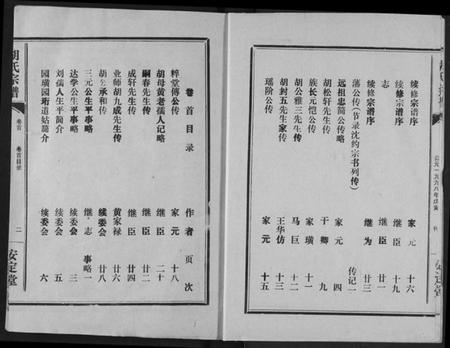 续修宗谱序 家元 十六
续修宗谱序 继臣 十九
志 继臣
续修宗谱序 继为 廿三
藩公传(节录沈约宗书列传) 传记一
远祖忠简公传略 家元 四
胡松轩先生传 于卿 九
族长元恺公传 家璜 十一
胡公雅三先生传 马巨 十二
胡封五先生家传 王华仿 十三
瑶阶公传 家元 十五
卷首目录 作者 页次
梓堂傅公传 家元 十八
胡母黄老孺人记略 继臣 二十
嗣春先生传 继臣 廿二
成轩先生传 继臣 廿四
业师胡九成先生传 黄家禄 廿六
胡 承和传 续委会 廿八
三元公生平事略 继志 事略一
达季公生平事略 续委会 三
刘孺人生平简介 续委会 五
园璜园珩道姑简介 续委会 六
胡氏宗谱 卷首 卷首目录 二 安定堂